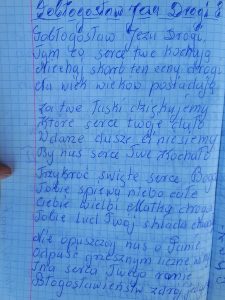 Pobłogosław Jezu Drogi
Pobłogosław Jezu Drogi
Tym co serce Twe kochają
Niechaj skarb ten cenny drogi
Na wiek wieków posiadają
Za twe łaski dziękujemy
Które serce twoje dało
W dani dusze Ci niesiemy
By nas serce Twe kochało
święte serce Boga
Tobie śpiewa niebo całe
Ciebie wielbi Matka
Tobie lud Twój składa
Nie opuszczaj nas o Panie
Odpuść grzesznym liczne winy
serca Twego
Błogosławieństw zdrój